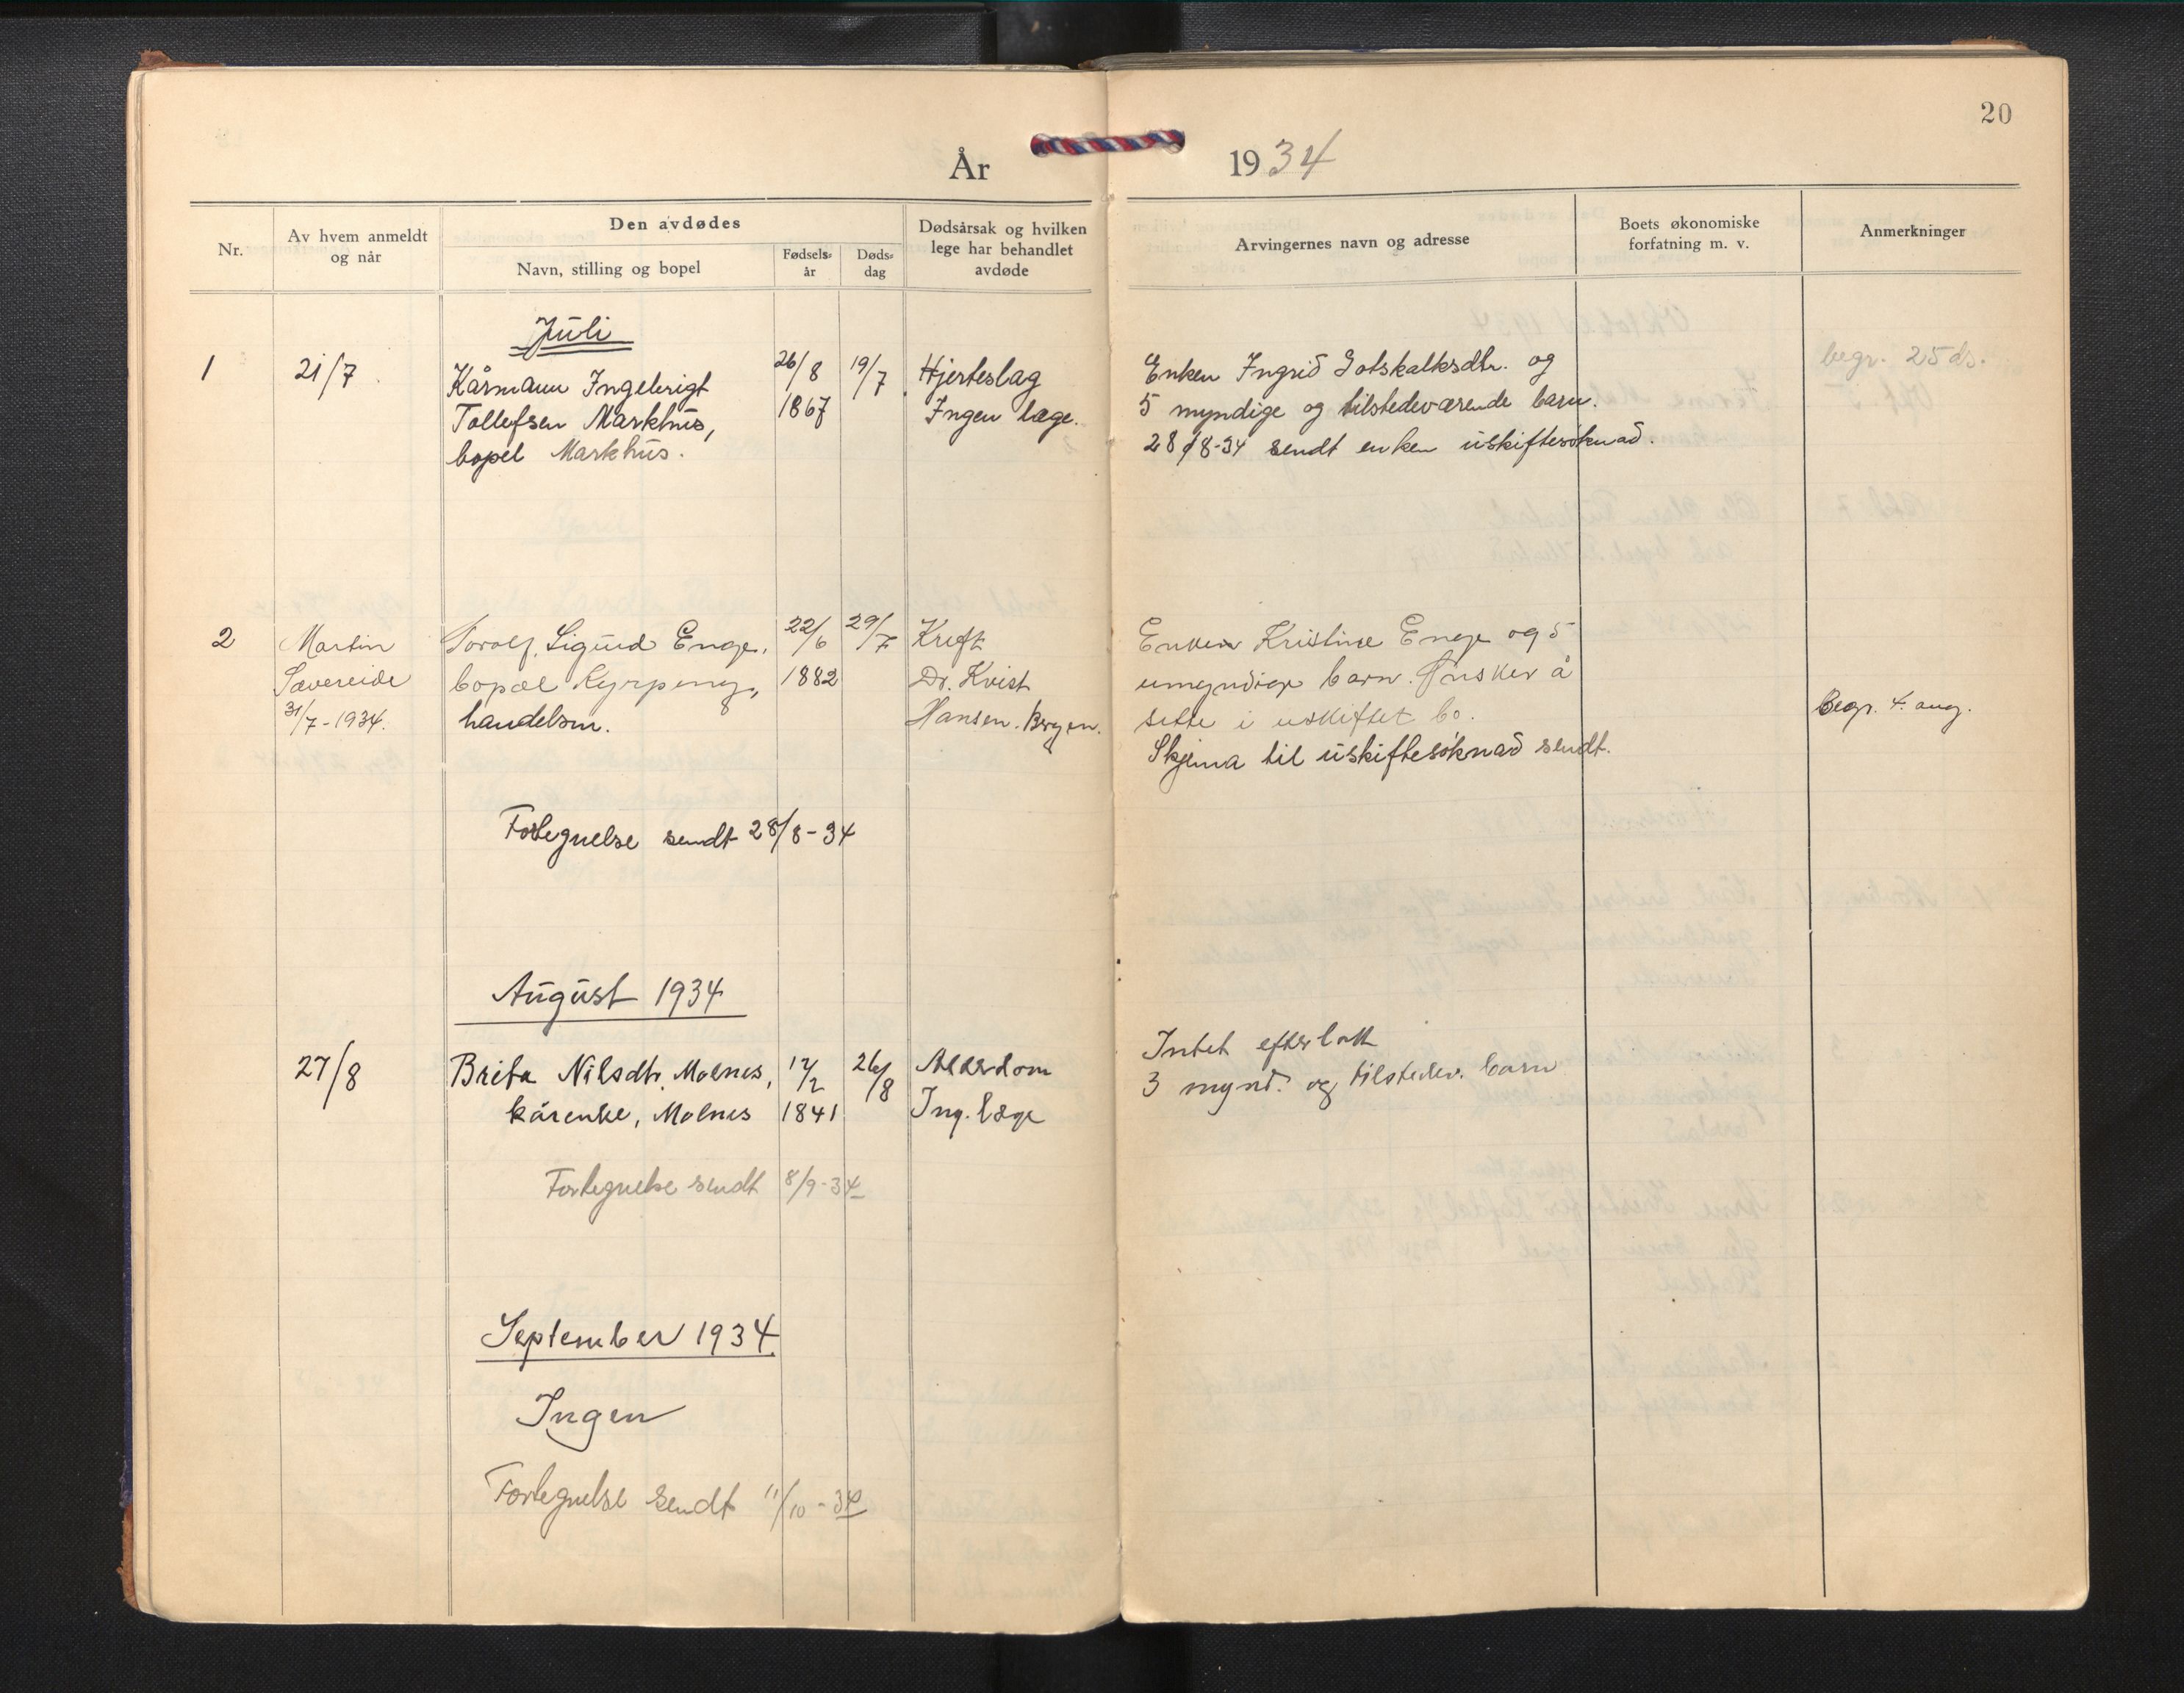 20
År 1934
Nr.
Av hvem anmeldt
og når
Den avdødes
Navn, stilling og bopel
Fødsels-
år
Døds-
dag
Dødsårsak og hvilken
lege har behandlet
avdøde
Arvingernes navn og adresse
Boets økonomiske
forfatning m. v.
Anmerkninger
Juli
1
21/7
Kårmann Ingebrigt
Tollefsen Markhus,
bopel Markhus.
26/8
1867
19/7
Hjerteslag
Ingen læge.
Enken Ingrid Gotskalksdtr. og
5 myndige og tilstedeværende barn.
28/8-34 sendt enken uskiftesøknad.
begr. 25 ds.
2
Martin
Sævereide
31/7-1934.
Torolf Sigurd Enge,
bopæl Kyrping,
handelsm.
22/6
1882
29/7
Kreft
Dr. Kvist
Hansen. Bergen.
Enken Kristine Enge og 5
umyndige barn. Ønsker å
sitte i uskiftet bo.
Skjema til uskiftesøknad sendt.
Begr. 4. aug.
Fortegnelse sendt 28/8-34
August 1934
27/8
Brita Nilsdtr. Molnes,
kårenke, Molnes
17/2
1841
26/8
Alderdom
Ing. læge
Intet efterlatt
3 mynd. og tilstedev. barn
Fortegnelse sendt 8/9-34
September 1934
Ingen
Fortegnelse sendt 11/10-34